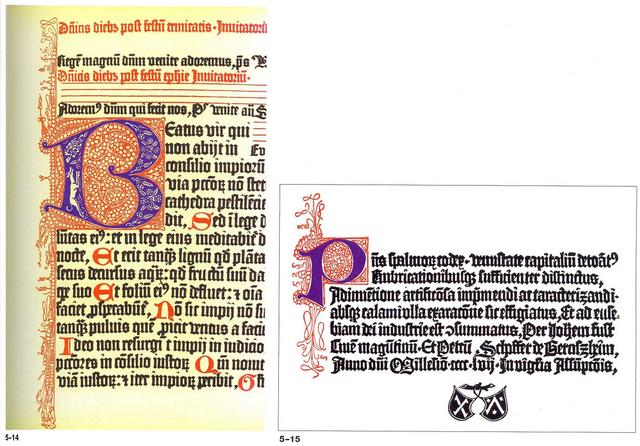 Dñicis diebz post festũ trinitatis · Invitatori
Regẽ magnũ dñm venite adoremus, p̃s V
Dñicis diebz post festũ ephie Invitatoriũ ·
Adorem⁹ dñm qui fecit nos, P⁹ venite añ S
Beatus vir qui
non abijt in Ev
consilio impiorũ
via pccõꝝ nõ stet
cathedra pestilẽcie
dit, Sed ĩ lege d
lũtas ei⁹: et in lege eius meditabit d
nocte, Et erit tanqꝫ lignũ qd plãta
secus decursus aqꝝ: qd fructũ suũ da
tpe suo Et foliũ ei⁹ nõ defluet: ⁊ oĩa
faciet ꝓsperabũt, Nõ sic impij nõ si
tanqꝫ puluis quẽ ꝓicit ventus a facie
Ideo non resurgũt impij in iudicio
pccõres in cõsilio iustoꝝ Qm̃ nouit
viã iustoꝝ: ⁊ iter impioꝝ peribit, G
5-14
Pñs spalmoꝝ codex · venustate capitaliũ decorat⁹
Rubricationibusqꝫ sufficienter distinctus,
Adinuentione artificiosa imprimendi ac caracterizandi ·
absqꝫ calami vlla exaracõne sic effigiatus, Et ad euse-
biam dei industrie est ↄsummatus, Per Johẽm fust
Ciuẽ magũtinũ · Et Petrũ Schoffer de Gernszheim,
Anno dñi Millesiõ · cccc · lvij · In vigilia Assũpcõis,
5-15